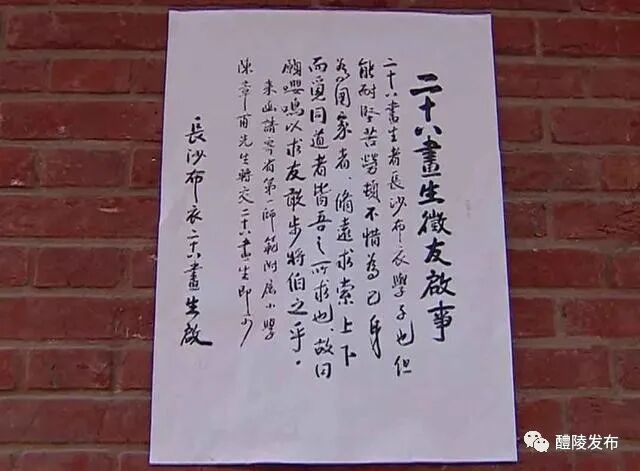 二十八畫生徵友啟事
二十八畫生者長沙布衣學子也但
能耐堅苦勞頓不惜為己身
為国家者、脩遠求索上下
而覓同道者皆吾之所求也、故曰
願嚶鳴以求友敢步將伯之乎。
来函請寄省第一師範附屬小學
陳章甫先生轉交二十八畫生即可
長沙布衣二十八畫生啟
醴陵发布